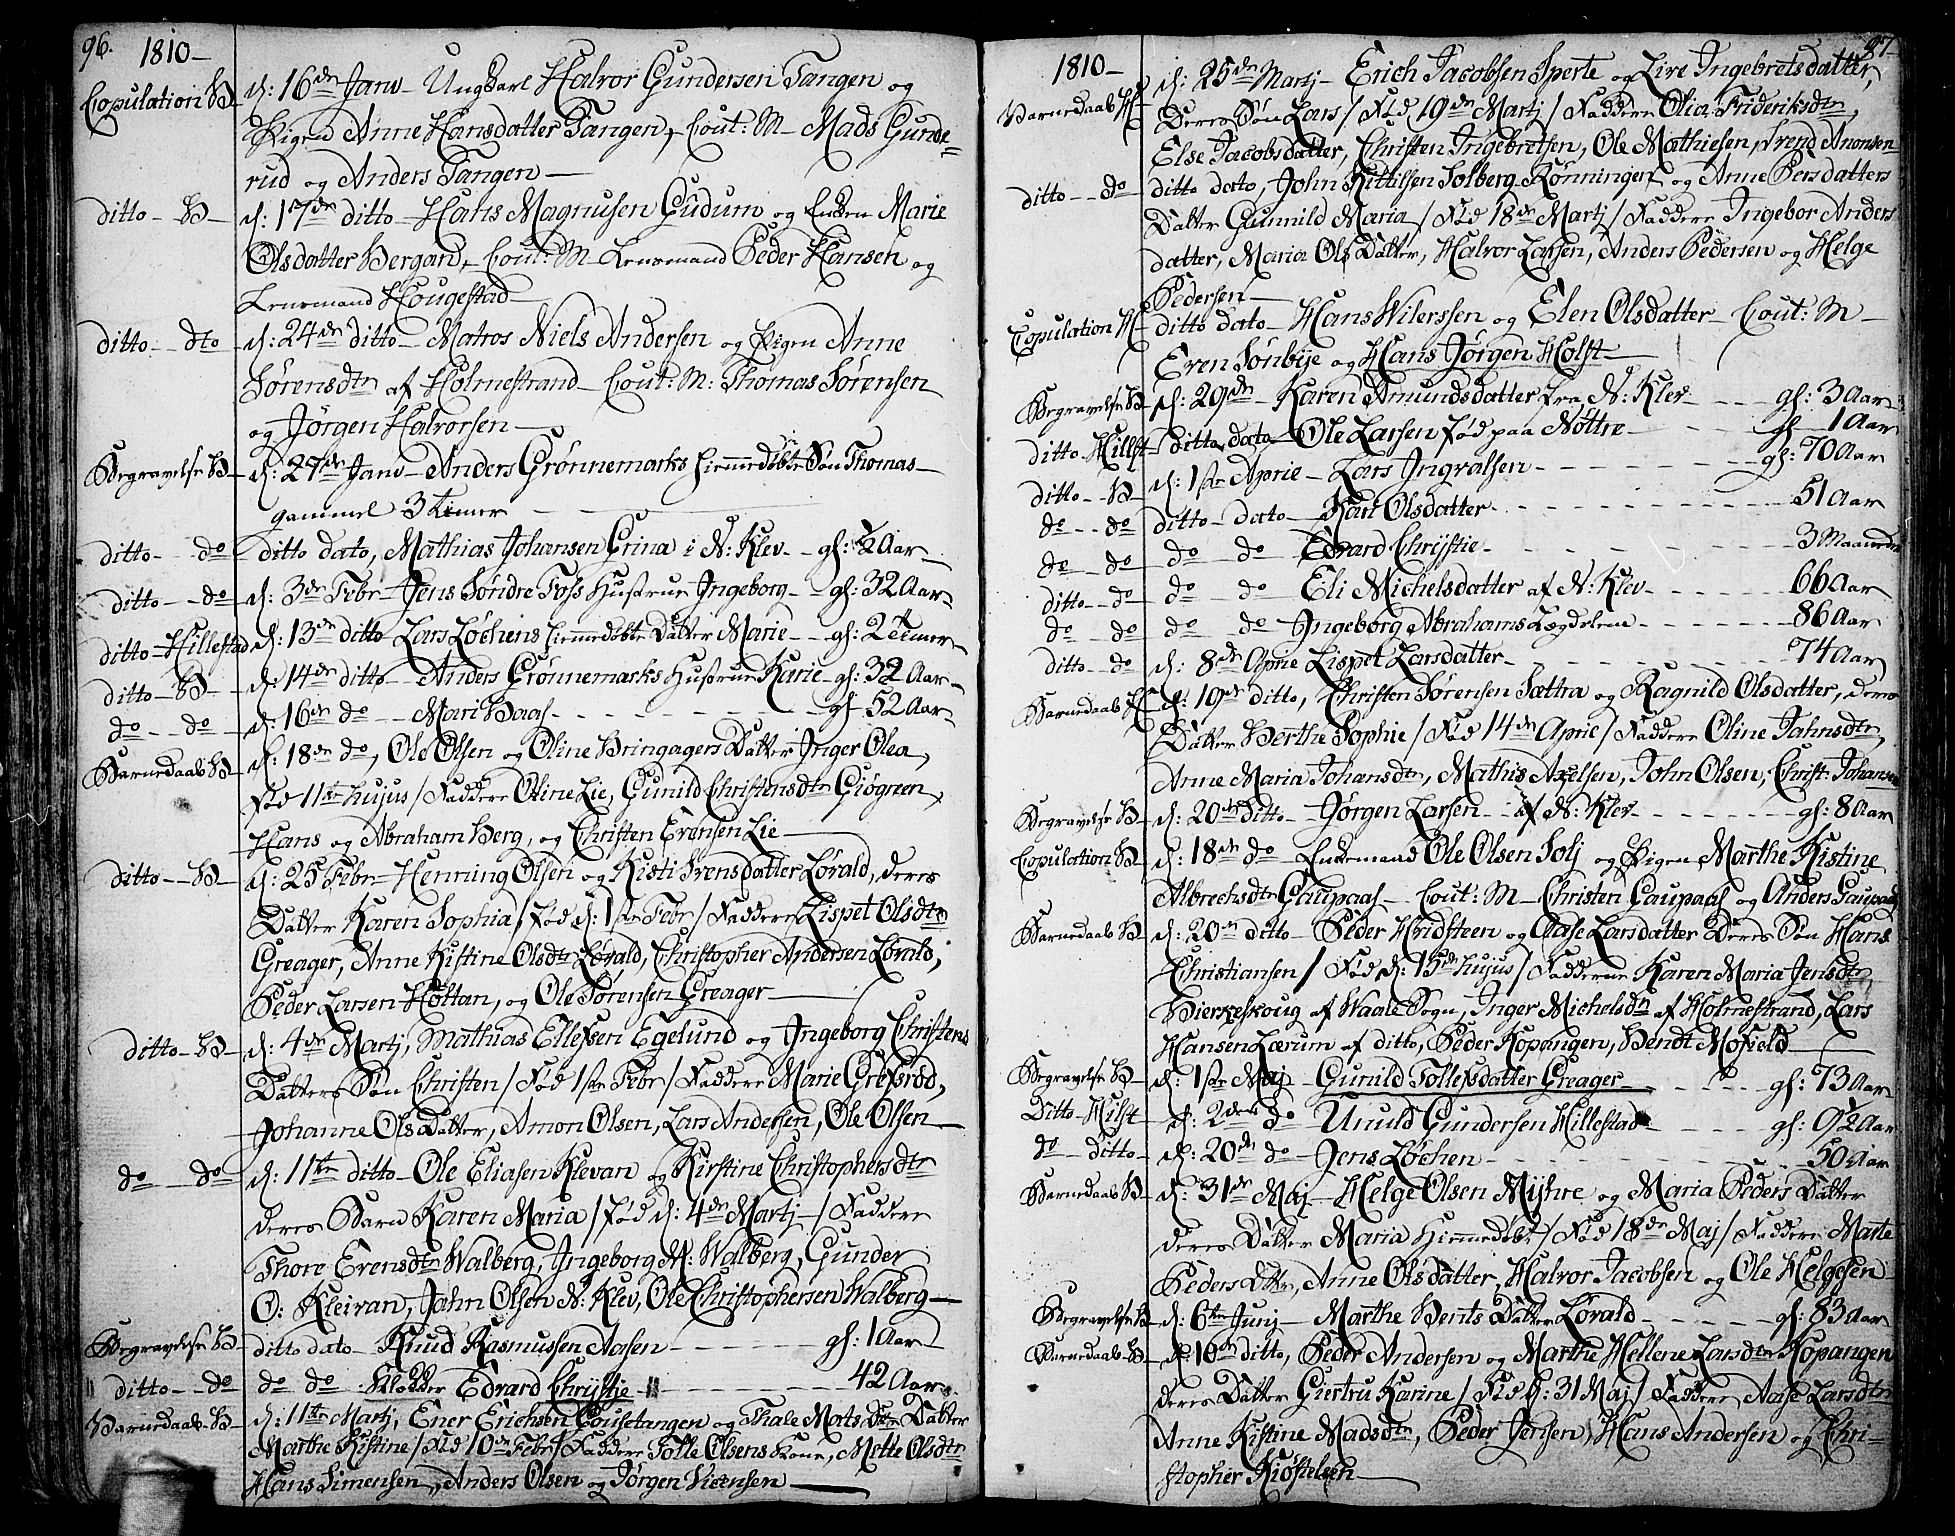 96.
1810 –
Copulation B – d: 16de Janv – Ungkarl Halvor Gundersen Tangen og
Pigen Anne Hansdatter Tangen, Cout: M – Mads Gunde-
rud og Anders Tangen –
ditto – B – d: 17de ditto – Hans Magnusen Gudum og Enken Marie
Olsdatter Bergard, Cout: M – Lensmand Peder Hansen og
Lensmand Hougestad –
ditto – dto d: 24de ditto – Matros Niels Andersen og Pigen Anne
Sørensdtr af Holmestrand – Cout: M: Thomas Sørensen
og Jørgen Halvorsen –
Begravelse B – d: 27de Janv – Anders Grønnemarks hiemmedøbte Søn Thomas –
gammel 3 Timer
ditto – do ditto dato, Mathias Johansen Grina i N: Klev – gl: ½ Aar –
ditto – do d: 3de Febr – Jens Søndre Foss Hustrue Ingeborg – gl: 32 Aar –
ditto – Hillestad d: 13de ditto Lars Løchens hiemmedøbte Datter Marie – gl: 2 Timer –
ditto – B – d: 14de ditto – Anders Grønnemarks Hustrue Karie – gl: 32 Aar –
do – do d: 16de do – Mari Haas – gl 52 Aar –
Barnedaab B – d: 18de do, Ole Olsen og Oline Bringagers Datter Inger Olea,
Fød 11te hujus / Faddere Oline Lie, Gunild Christensdtr Giøgreen,
Hans og Abraham Berg, og Christen Evensen Lie –
ditto – B – d: 25 Febr – Henning Olsen og Kisti Svensdatter Løvald, deres
Datter Karen Sophia / Fød d: 1ste Febr / Faddere Lispet Olsdtr
Greager, Anne Kistine Olsdtr Løvald, Christopher Andersen Løvald,
Peder Larsen Holtan, og Ole Sørensen Greager –
ditto – B – d: 4de Martj, Mathias Ellefsen Egelund og Ingeborg Christens
Datters Søn Christen / Fød 1ste Febr / Faddere Marie Grefsrød,
Johanne Ols Datter, Amon Olsen, Lars Andersen, Ole Olsen –
do – do d: 11te ditto – Ole Eliasen Klevan og Kirstine Christophersdtr
deres Barn Karen Maria / Fød d: 4de Martj – / Faddere
Thore Evensdtr Walberg, Ingeborg N: Walberg, Gunder
O: Kleivan, Jahn Olsen N: Klev, Ole Christophersen Walberg –
Begravelse B – ditto dato – Knud Rasmussen Aasen – gl: 1 Aar
ditto – do do do Klokker Edvard Chrystie – 42 Aar
Barnedaab B – d: 11te Martj, Ener Erichsen Coustangen og Thale Mortsdtr Datter
Marthe Kistine / Fød 10de Febr / Faddere Tolle Olsens Kone, Mette Olsdtr
Hans Simensen, Anders Olsen og Jørgen Simensen –
97
1810 –
Barnedaab H – d: 25de Martj – Erich Jacobsen Sperte og Live Ingebretsdatter,
Deres Søn Lars / Fød 19de Martj / Faddere Olia Frideriksdtr,
Else Jacobsdatter, Christen Ingebretsen, Ole Mathiesen, Svend Anonsen
ditto – do ditto dato, John Kittilsen Solberg Rønningen og Anne Persdatters
Datter Gunnild Maria / Fød 18de Martj / Faddere Ingebor Anders
datter, Maria Ols Datter, Halvor Larsen, Anders Pedersen og Helge
Pedersen –
Copulation H – ditto dato – Hans Wilerssen og Elen Olsdatter – Cout: M –
Even Sønbye og Hans Jørgen Holst –
Begravelse B – d: 29de – Karen Amundsdatter fra N: Klev – gl: 3 Aar
ditto – Hillst – ditto dato – Ole Larsen Fød paa Nøttre – gl – 1 Aar
ditto – B – d: 1ste Aprie – Lars Ingvalsen – gl: 70 Aar
do – do ditto – dato – Kari Olsdatter – 51 Aar
do – do do do Edvard Chrystie – 3 Maaneder
ditto – do do do Eli Michelsdatter af N: Klev – 66 Aar
do – do do do Ingeborg Abrahams Lægdelem – 86 Aar
ditto – do d: 8de Aprie Lispet Larsdatter – 74 Aar
Barnedaab H – d: 19de ditto, Christen Sørensen Sættra og Ragnild Olsdatter, deres
Datter Berthe Sophie / Fød 14de Aprie / Faddere Oline Jahnsdtr,
Anne Maria Johansdtr, Mathis Axelsen, John Olsen, Christ: Johansen
Begravelse B – d: 20de ditto – Jørgen Larsen – af N: Klev – gl: 8 Aar
Copulation B – d: 18de do – Enkemand Ole Olsen Solj og Pigen Marthe Kistine
Albrechsdtr Gaupaas – Cout: M – Christen Gaupaas og Anders Gaupaas
Barnedaab B – d: 20de ditto – Peder Hvidsteen og Aase Larsdatter Deres Søn Hans
Christiansen / Fød d: 15de hujus / Faddere Karen Maria Jensdtr
Bierkeskoug af Waale Sogn, Inger Michelsdtr af Holmestrand, Lars
Hansen Lærum af ditto, Peder Kopangen, Bendt Mofield –
Begravelse B – d: 1ste Maj – Gunild Tollefsdatter Greager – gl: 73 Aar
Ditto – Hilst d: 2den do Unuld Gundersen Hillestad – gl: 92 Aar
do – ditto – d: 20de do Jens Løchen – 50 Aar
Barnedaab B – d: 31de Maj – Helge Olsen Myhre og Maria Peders Datter
deres Datter Maria hiemmedøbt / Fød 18de Maj / Faddere Marte
Peders Dtr, Anne Ols datter, Halvor Jacobsen og Ole Helgesen
Begravelse B – d: 6te Junj – Marthe Bents Datter Løvald – gl: 83 Aar
Barnedaab B – d: 10de ditto, Peder Andersen og Marthe Hellene Larsdtr Kopangen
deres Datter Giertru Karine / Fød d: 31 Maj / Faddere Aase Larsdtr
Anne Kistine Madsdtr, Peder Jensen, Hans Andersen og Chri-
stopher Kiøstelsen –